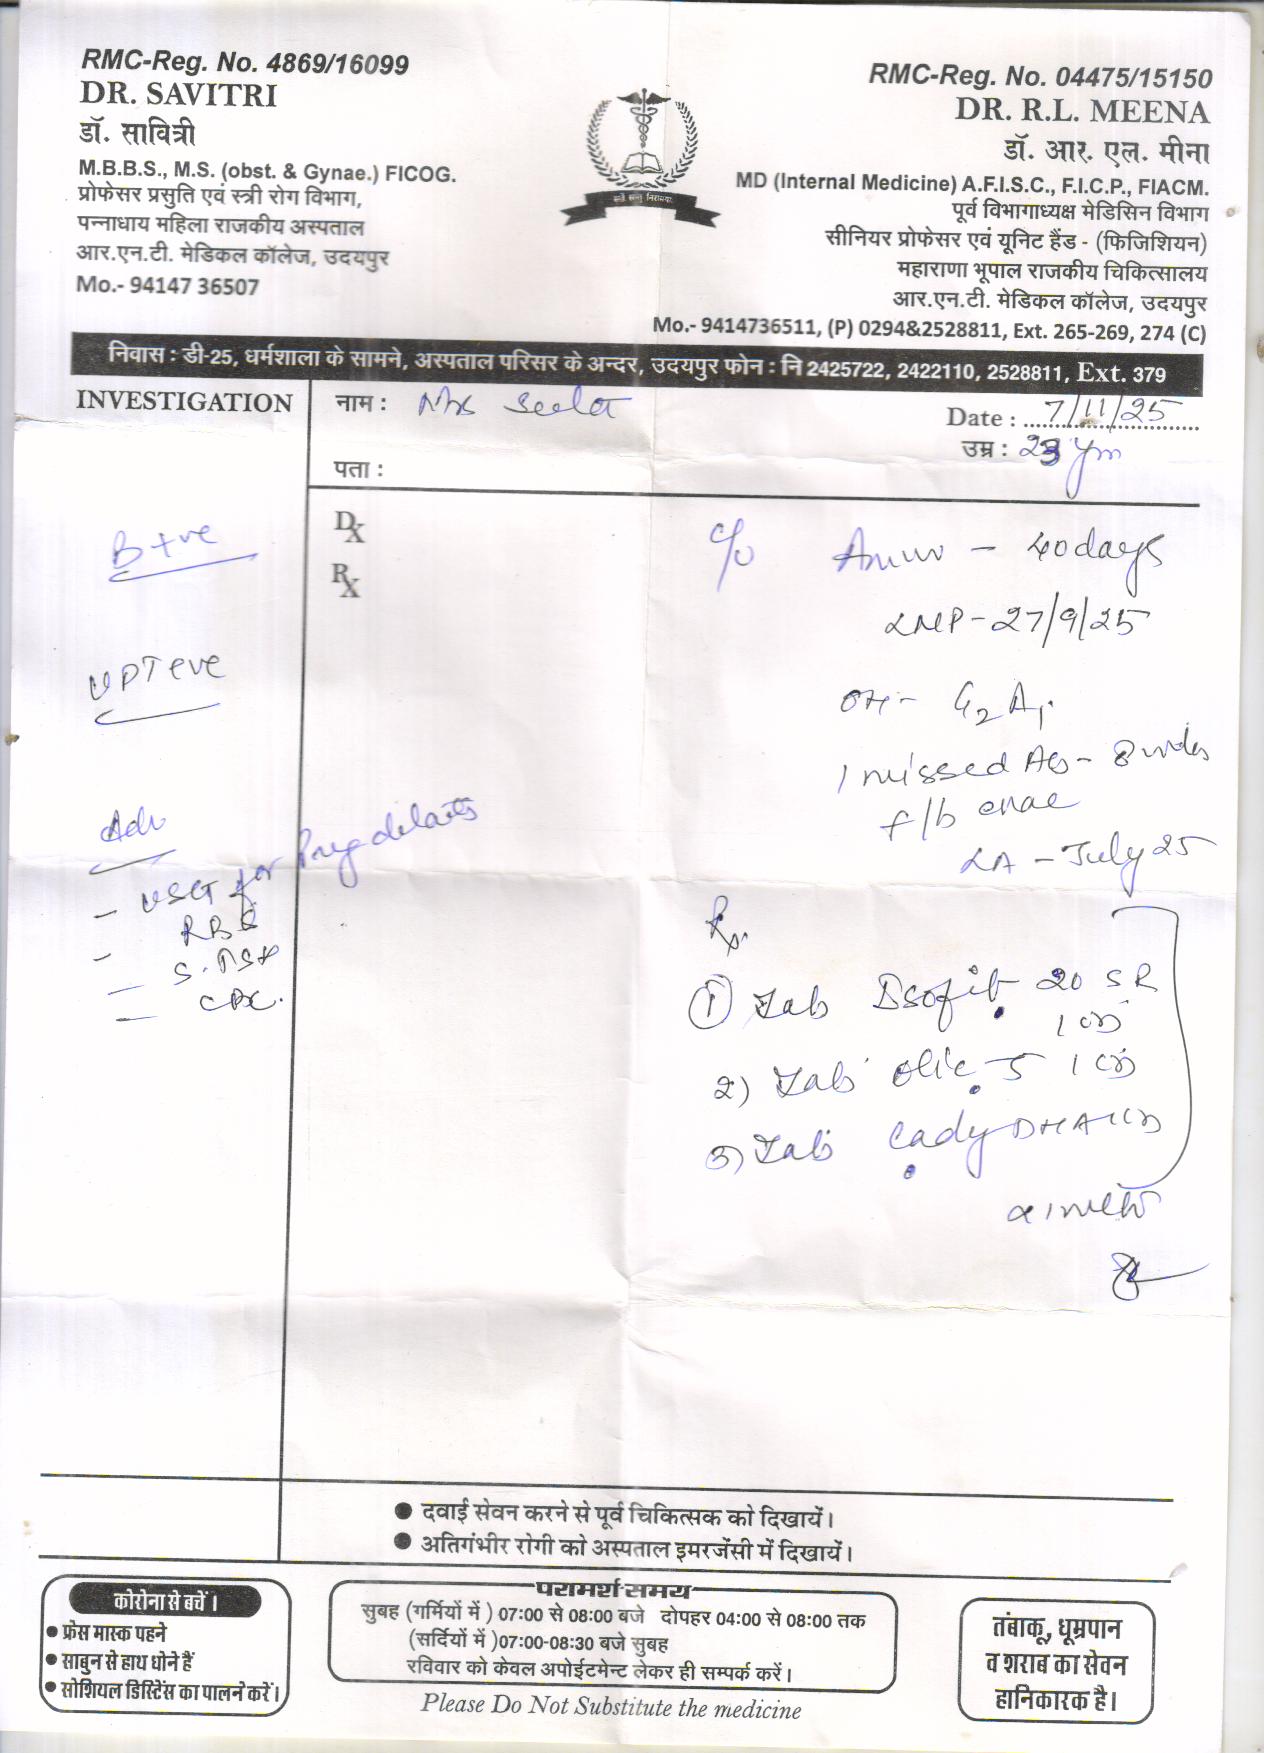 RMC-Reg. No. 4869/16099
DR. SAVITRI
डॉ. सावित्री
M.B.B.S., M.S. (obst. & Gynae.) FICOG.
प्रोफेसर प्रसुति एवं स्त्री रोग विभाग,
पन्नाधाय महिला राजकीय अस्पताल
आर.एन.टी. मेडिकल कॉलेज, उदयपुर
Mo.- 94147 36507
RMC-Reg. No. 04475/15150
DR. R.L. MEENA
डॉ. आर. एल. मीना
MD (Internal Medicine) A.F.I.S.C., F.I.C.P., FIACM.
पूर्व विभागाध्यक्ष मेडिसिन विभाग
सीनियर प्रोफेसर एवं यूनिट हैंड - (फिजिशियन)
महाराणा भूपाल राजकीय चिकित्सालय
आर.एन.टी. मेडिकल कॉलेज, उदयपुर
Mo.- 9414736511, (P) 0294&2528811, Ext. 265-269, 274 (C)
निवास : डी-25, धर्मशाला के सामने, अस्पताल परिसर के अन्दर, उदयपुर फोन : नि 2425722, 2422110, 2528811, Ext. 379
INVESTIGATION
नाम : Mrs Seela
Date : 7/11/25
उम्र : 23 yrs
पता :
Dx
Rx
B+ve
UPT +ve
Adv
- USG for Preg details
- RBS
- S. TSH
- CBC.
c/o - 40 days
LMP - 27/9/25
OH - G2 A1.
1 missed Ab - 8 wks
f/b
LA - July 25
Rx.
① Tab 20 SR
1 OD
2) Tab 5 1 OD
3) Tab DHA 1 OD
x 1 mth
दवाई सेवन करने से पूर्व चिकित्सक को दिखायें।
अतिगंभीर रोगी को अस्पताल इमरजेंसी में दिखायें।
कोरोना से बचें ।
फ्रेस मास्क पहने
साबुन से हाथ धोने हैं
सोशियल डिस्टिेंस का पालन करें।
परामर्श समय
सुबह (गर्मियों में ) 07:00 से 08:00 बजे दोपहर 04:00 से 08:00 तक
(सर्दियों में )07:00-08:30 बजे सुबह
रविवार को केवल अपोईटमेन्ट लेकर ही सम्पर्क करें।
Please Do Not Substitute the medicine
तंबाकू, धूम्रपान
व शराब का सेवन
हानिकारक है।